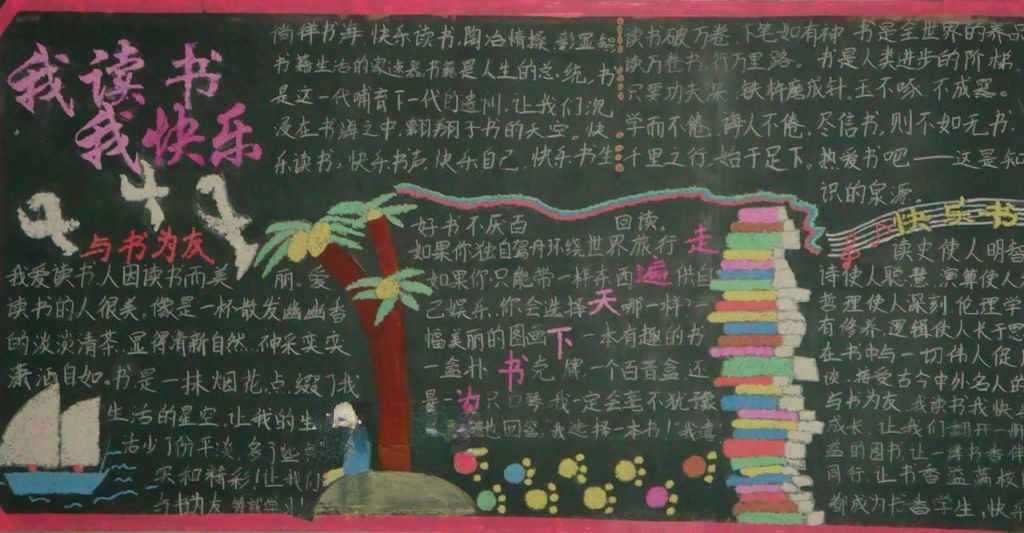 我读书
我快乐
徜徉书海,快乐读书,陶冶情操,彰显智
书籍生活的变速器,书籍是人生的总统,书
是这一代哺育下一代的遗训,让我们沉
浸在书海之中,翱翔于书的天空。快
乐读书,快乐书声,快乐自己,快乐书生
读书破万卷,下笔如有神,书是全世界的养品
读万卷书,行万里路。书是人类进步的阶梯,
只要功夫深,铁杵磨成针。玉不啄,不成器。
学而不倦,诲人不倦,尽信书,则不如无书,
千里之行,始于足下。热爱书吧——这是知
识的泉源。
与书为友
我爱读书,人因读书而美丽。爱
读书的人很美,像是一杯散发幽幽香
的淡淡清茶,显得清新自然,神采奕奕
潇洒自如。书是一抹烟花,点缀了我
生活的星空,让我的生
活少了份平淡,多了些
实和精彩!让我们
与书为友
好书不厌百回读。
如果你独自驾舟环绕世界旅行
如果你只能带一样东西供自
己娱乐,你会选择哪一样?一
幅美丽的图画,一本有趣的书
一盒扑克牌,一个百音盒,还
是一只口琴,我一定会毫不犹豫
地回答,我选择一本书!
走遍天下书为
快乐书
读史使人明智
诗使人聪慧,演算使人
哲理使人深刻,伦理学
有修养,逻辑使人长于思
在书中与一切伟人促
谈,接受古今中外名人的
与书为友,我读书我快
成长,让我们翻开一册
益的图书,让一缕书香伴
同行,让书香益满校
都成为书香学生,快乐